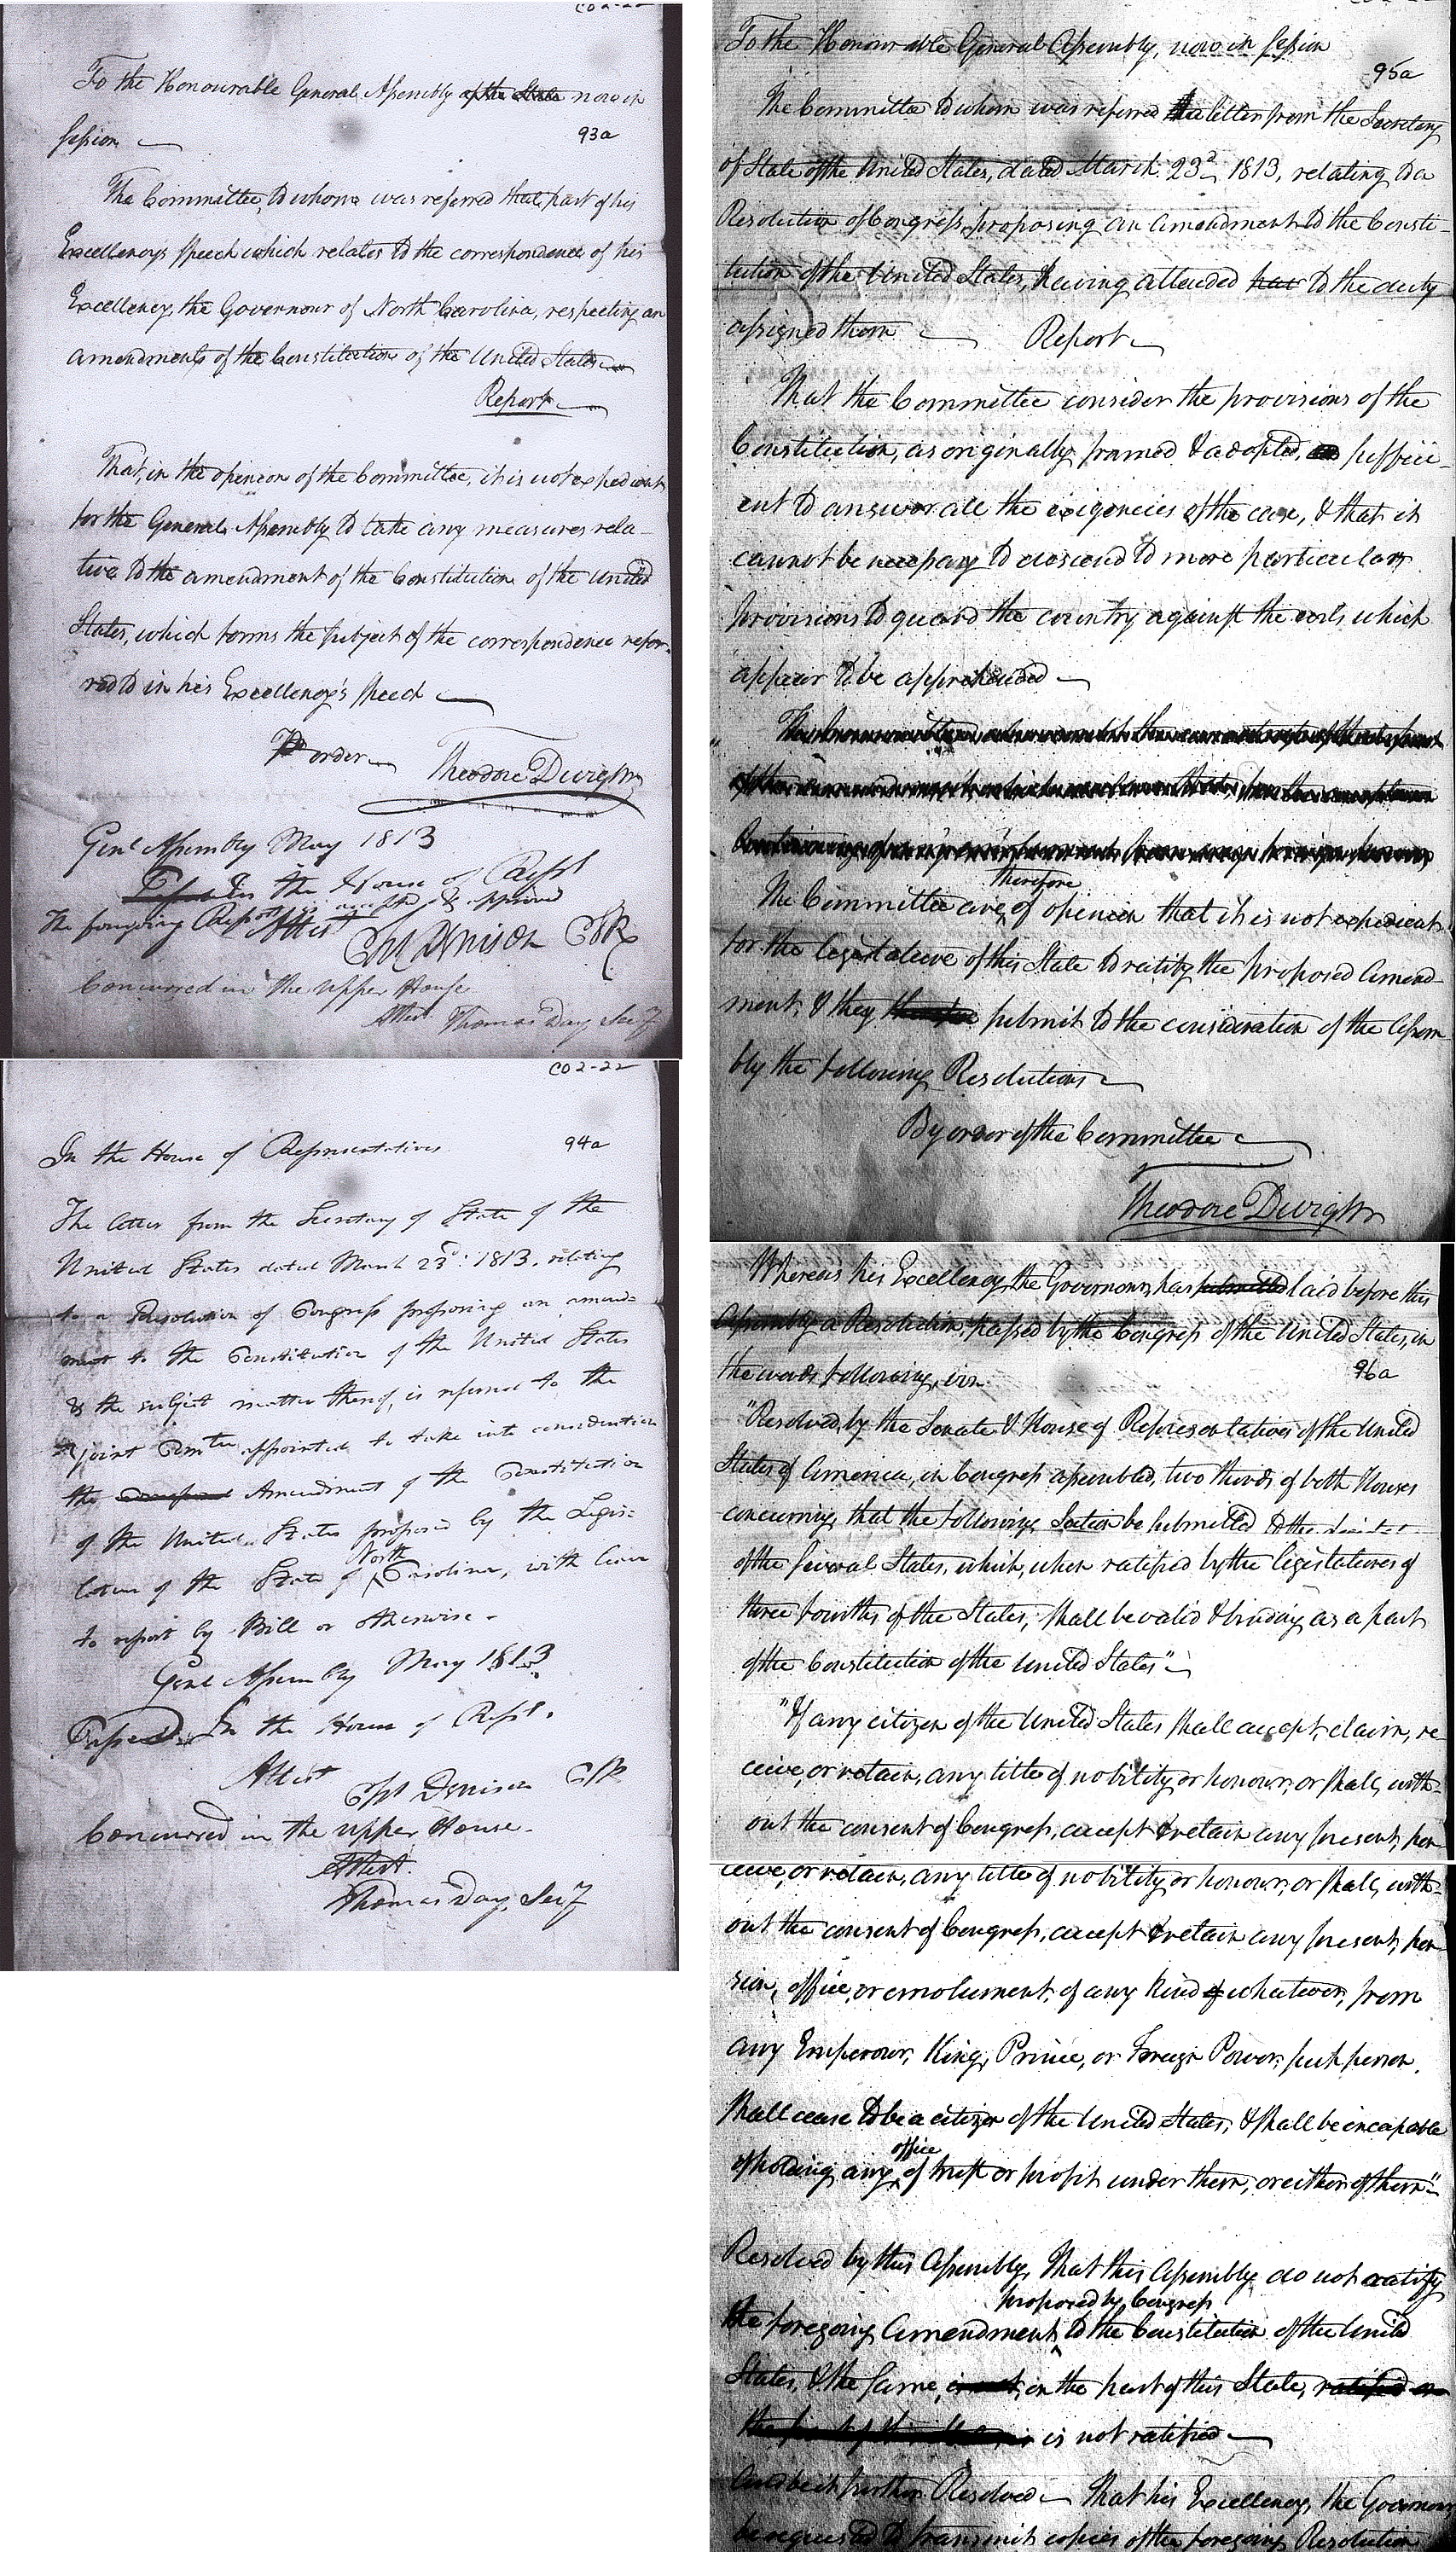 To the Honourable General Assembly of the State now in
93a
session
The Committee, to whom was referred that part of his
Excellency's speech which relates to the correspondence of his
Excellency, the Governour of North Carolina, respecting an
amendments of the Constitution of the United States
Report
That, in the opinion of the Committee, it is not expedient
for the General Assembly to take any measures rela-
tive to the amendment of the Constitution of the United
States, which forms the subject of the correspondence refer-
red to in his Excellency's speech
Pr order Theodore Dwight
Genl Assembly May 1813
In the House of Repst
The foregoing Report is accepted & approved
Attest Chs Denison Clk
Concurred in the upper House
Attest. Thomas Day Secy
CO2-22
94a
In the House of Representatives
The letter from the Secretary of State of the
United States dated March 23d: 1813, relating
to a Resolution of Congress proposing an amend-
ment to the Constitution of the United States
& the subject matter thereof, is referred to the
joint Comtee appointed to take into consideration
the Amendment of the Constitution
of the United States proposed by the Legis-
North
lature of the State of Carolina, with leave
to report by Bill or otherwise -
Genl Assembly May 1813
Passed In the House of Repst.
Attest
Chs Denison Clk
Concurred in the upper House.
Attest.
Thomas Day, Secy
To the Honourable General Assembly, now in session
95a
The Committee to whom was referred a letter from the Secretary
of State of the United States, dated March 23d 1813, relating to a
Resolution of Congress, proposing an amendment to the Consti-
tution of the United States, having attended to the duty
assigned them Report
That the Committee consider the provisions of the
Constitution, as originally framed & adopted, suffici-
ent to answer all the exigencies of the case, & that it
cannot be necessary to descend to more particular
provisions to guard the country against the evils which
appear to be apprehended
therefore
The Committee are of opinion that it is not expedient
for the legislature of this State to ratify the proposed Amend-
ment, & they submit to the consideration of the Assem-
bly the following Resolutions
By order of the Committee
Theodore Dwight
Whereas his Excellency the Governour, has submitted laid before this
Assembly a Resolution, passed by the Congress of the United States, in
the words following, viz.
96a
"Resolved, by the Senate & House of Representatives of the United
States of America, in Congress assembled, two thirds of both Houses
concurring, that the following Section be submitted to the
of the several States, which, when ratified by the legislatures of
three fourths of the States, shall be valid & binding, as a part
of the Constitution of the United States"
"If any citizen of the United States shall accept, claim, re-
ceive, or retain, any title of nobility or honour, or shall, with-
out the consent of Congress, accept & retain any present, pen-
ceive, or retain, any title of nobility or honour, or shall, with-
out the consent of Congress, accept & retain any present, pen-
sion, office, or emolument, of any kind of whatever, from
any Emperour, King, Prince, or Foreign Power, such person
shall cease to be a citizen of the United States, & shall be incapable
office
of holding any of trust or profit under them, or either of them"
Resolved by this Assembly, That this Assembly do not ratify
proposed by Congress
the foregoing Amendment to the Constitution of the United
States, & the same, is not, on the part of this State, ratified on
the part of this State, is not ratified
And be it further Resolved That his Excellency, the Governour
be requested to transmit copies of the foregoing Resolution